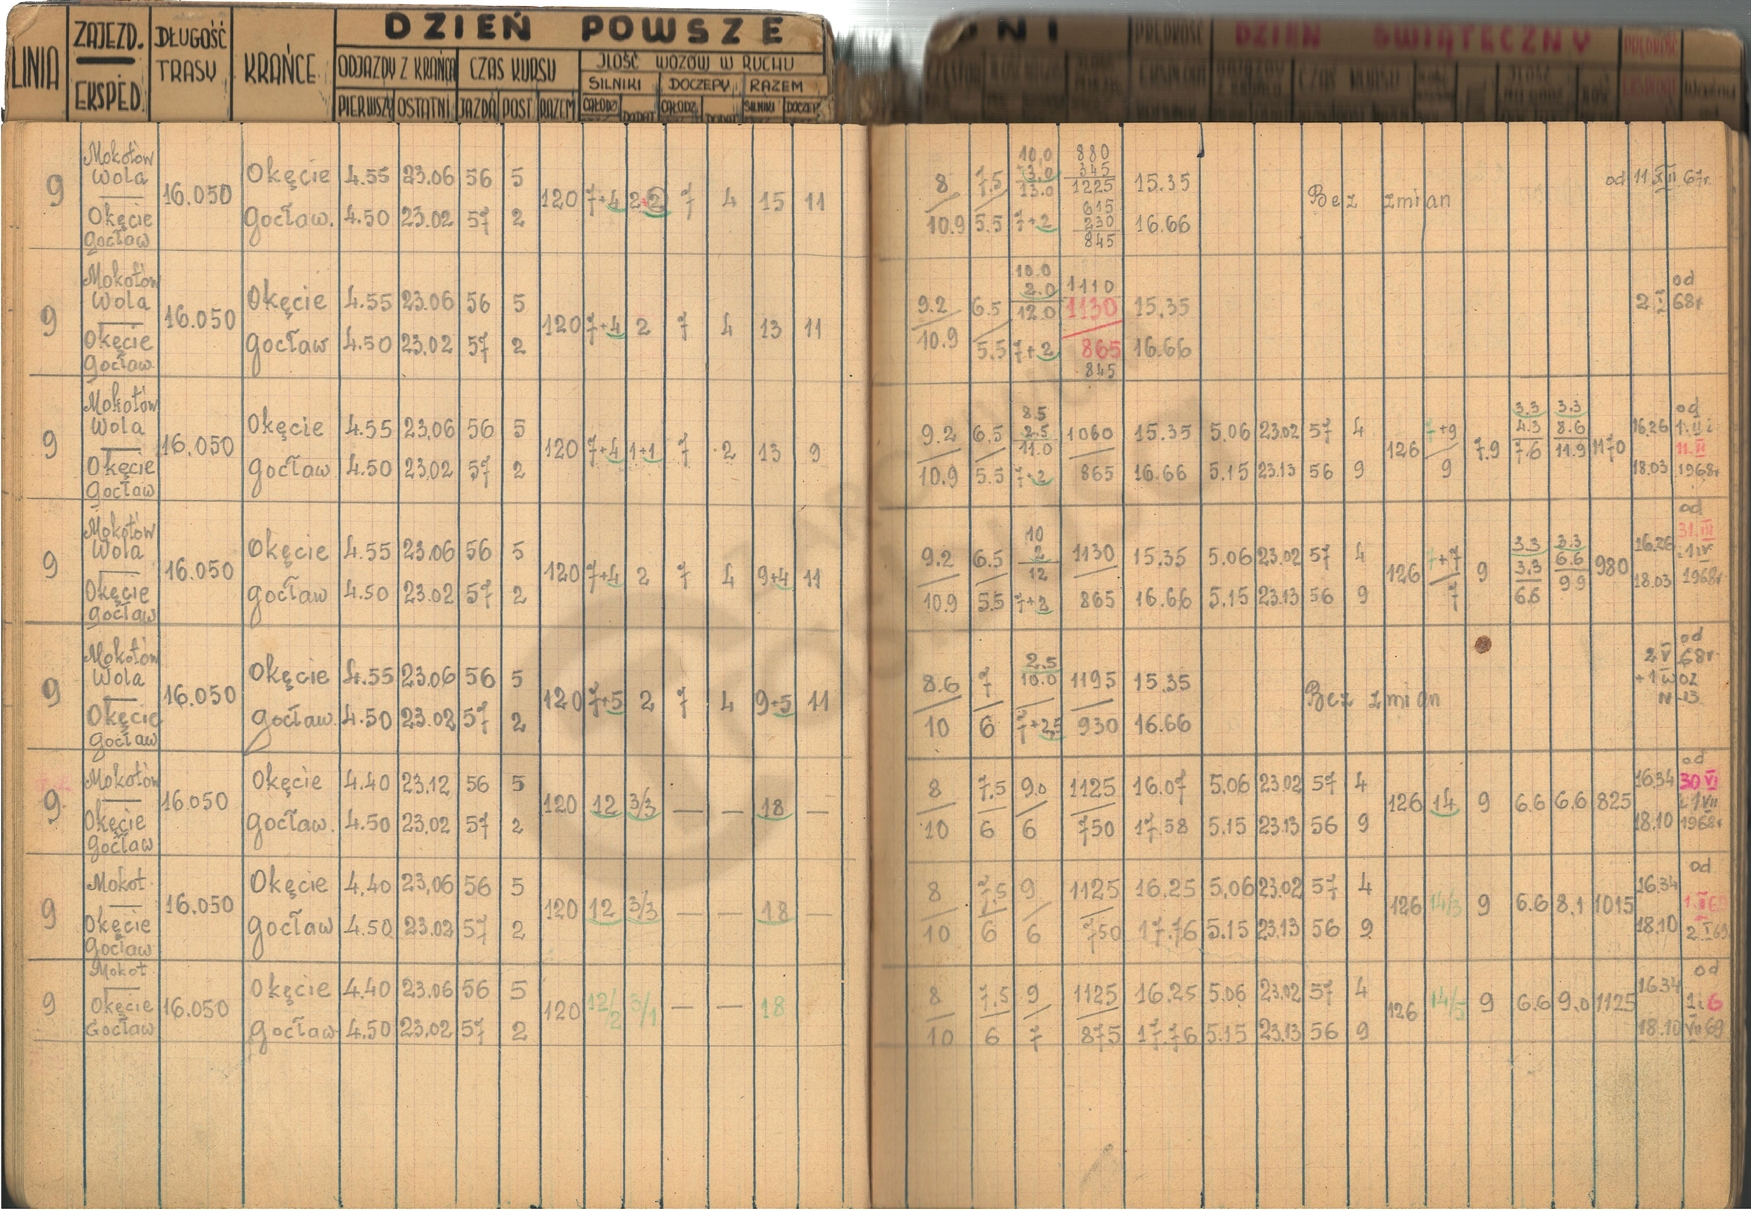 LINIA ZAJEZD. EKSPED. DŁUGOŚĆ TRASY KRAŃCE DZIEŃ POWSZE DNI
ODJAZDY Z KRAŃCA CZAS KURSU ILOŚĆ WOZÓW W RUCHU
SILNIKI DOCZEPY RAZEM
PIERWSZY OSTATNI JAZDA POST. RAZEM CAŁODZ. DODAT. CAŁODZ. DODAT. SILNIKI DOCZEP.
PRĘDKOŚĆ DZIEŃ ŚWIĄTECZNY PRĘDKOŚĆ
9 Mokotów Wola
Okęcie Gocław 16.050
Okęcie 4.55 23.06 56 5
Gocław. 4.50 23.02 57 2
120 7+4 2+2 7 4 15 11
8 7,5 10,0 3,0 13.0 880 345 1225 15.35
10.9 5.5 7+2 615 230 845 16.66
Bez zmian
od 11 XII 67r.
9 Mokotów Wola
Okęcie Gocław 16.050
Okęcie 4.55 23.06 56 5
Gocław 4.50 23.02 57 2
120 7+4 2 7 4 13 11
9.2 6.5 10.0 2.0 12.0 1110 1130 15.35
10.9 5.5 7+2 865 845 16.66
od 2 I 68r
9 Mokotów Wola
Okęcie Gocław 16.050
Okęcie 4.55 23,06 56 5
Gocław 4.50 23,02 57 2
120 7+4 1+1 7 2 13 9
9.2 6,5 8.5 2.5 11.0 1060 15.35 5.06 23.02 57 4
10.9 5.5 7+2 865 16.66 5.15 23.13 56 9
126 7+9 9 7.9 3.3 4.3 7.6 3.3 8.6 11.9 1170 16.26 18.03
od 1968r
9 Mokotów Wola
Okęcie Gocław 16.050
Okęcie 4.55 23.06 56 5
Gocław 4.50 23.02 57 2
120 7+4 2 7 4 9+4 11
9.2 6.5 10 2 12 1130 15.35 5.06 23.02 57 4
10.9 5.5 7+2 865 16.66 5.15 23.13 56 9
126 7+7 7 9 3.3 3.3 6.6 3.3 6.6 9.9 980 16.26 18.03
od 31.III 1 IV 1968r
9 Mokotów Wola
Okęcie Gocław 16.050
Okęcie 4.55 23.06 56 5
Gocław 4.50 23.02 57 2
120 7+5 2 7 4 9+5 11
8.6 7 2.5 10.0 1195 15.35
10 6 7+2,5 930 16.66
Bez zmian
od 2 V 68r.
+ 1 woz
N-13
9 Mokotów
Okęcie Gocław 16.050
Okęcie 4.40 23.12 56 5
Gocław. 4.50 23,02 57 2
120 12 3/3 — — 18 —
8 7,5 9.0 1125 16.07 5.06 23.02 57 4
10 6 6 750 17.58 5.15 23.13 56 9
126 14 9 6.6 6.6 825 16.34 18.10
od 30 VI i 1 VII 1968r
9 Mokot
Okęcie Gocław 16.050
Okęcie 4.40 23,06 56 5
Gocław 4.50 23.02 57 2
120 12 3/3 — — 18 —
8 7,5 9 1125 16.25 5,06 23.02 57 4
10 6 6 750 17.76 5.15 23.13 56 9
126 14/3 9 6.6 8,1 1015 16.34 18.10
od
9 Mokot
Okęcie Gocław 16.050
Okęcie 4.40 23.06 56 5
Gocław 4.50 23,02 57 2
120 12/2 3/1 — — 18
8 7,5 9 1125 16.25 5.06 23.02 57 4
10 6 7 875 17.76 5.15 23.13 56 9
126 14/5 9 6.6 9.0 1125 16.34 18.10
od